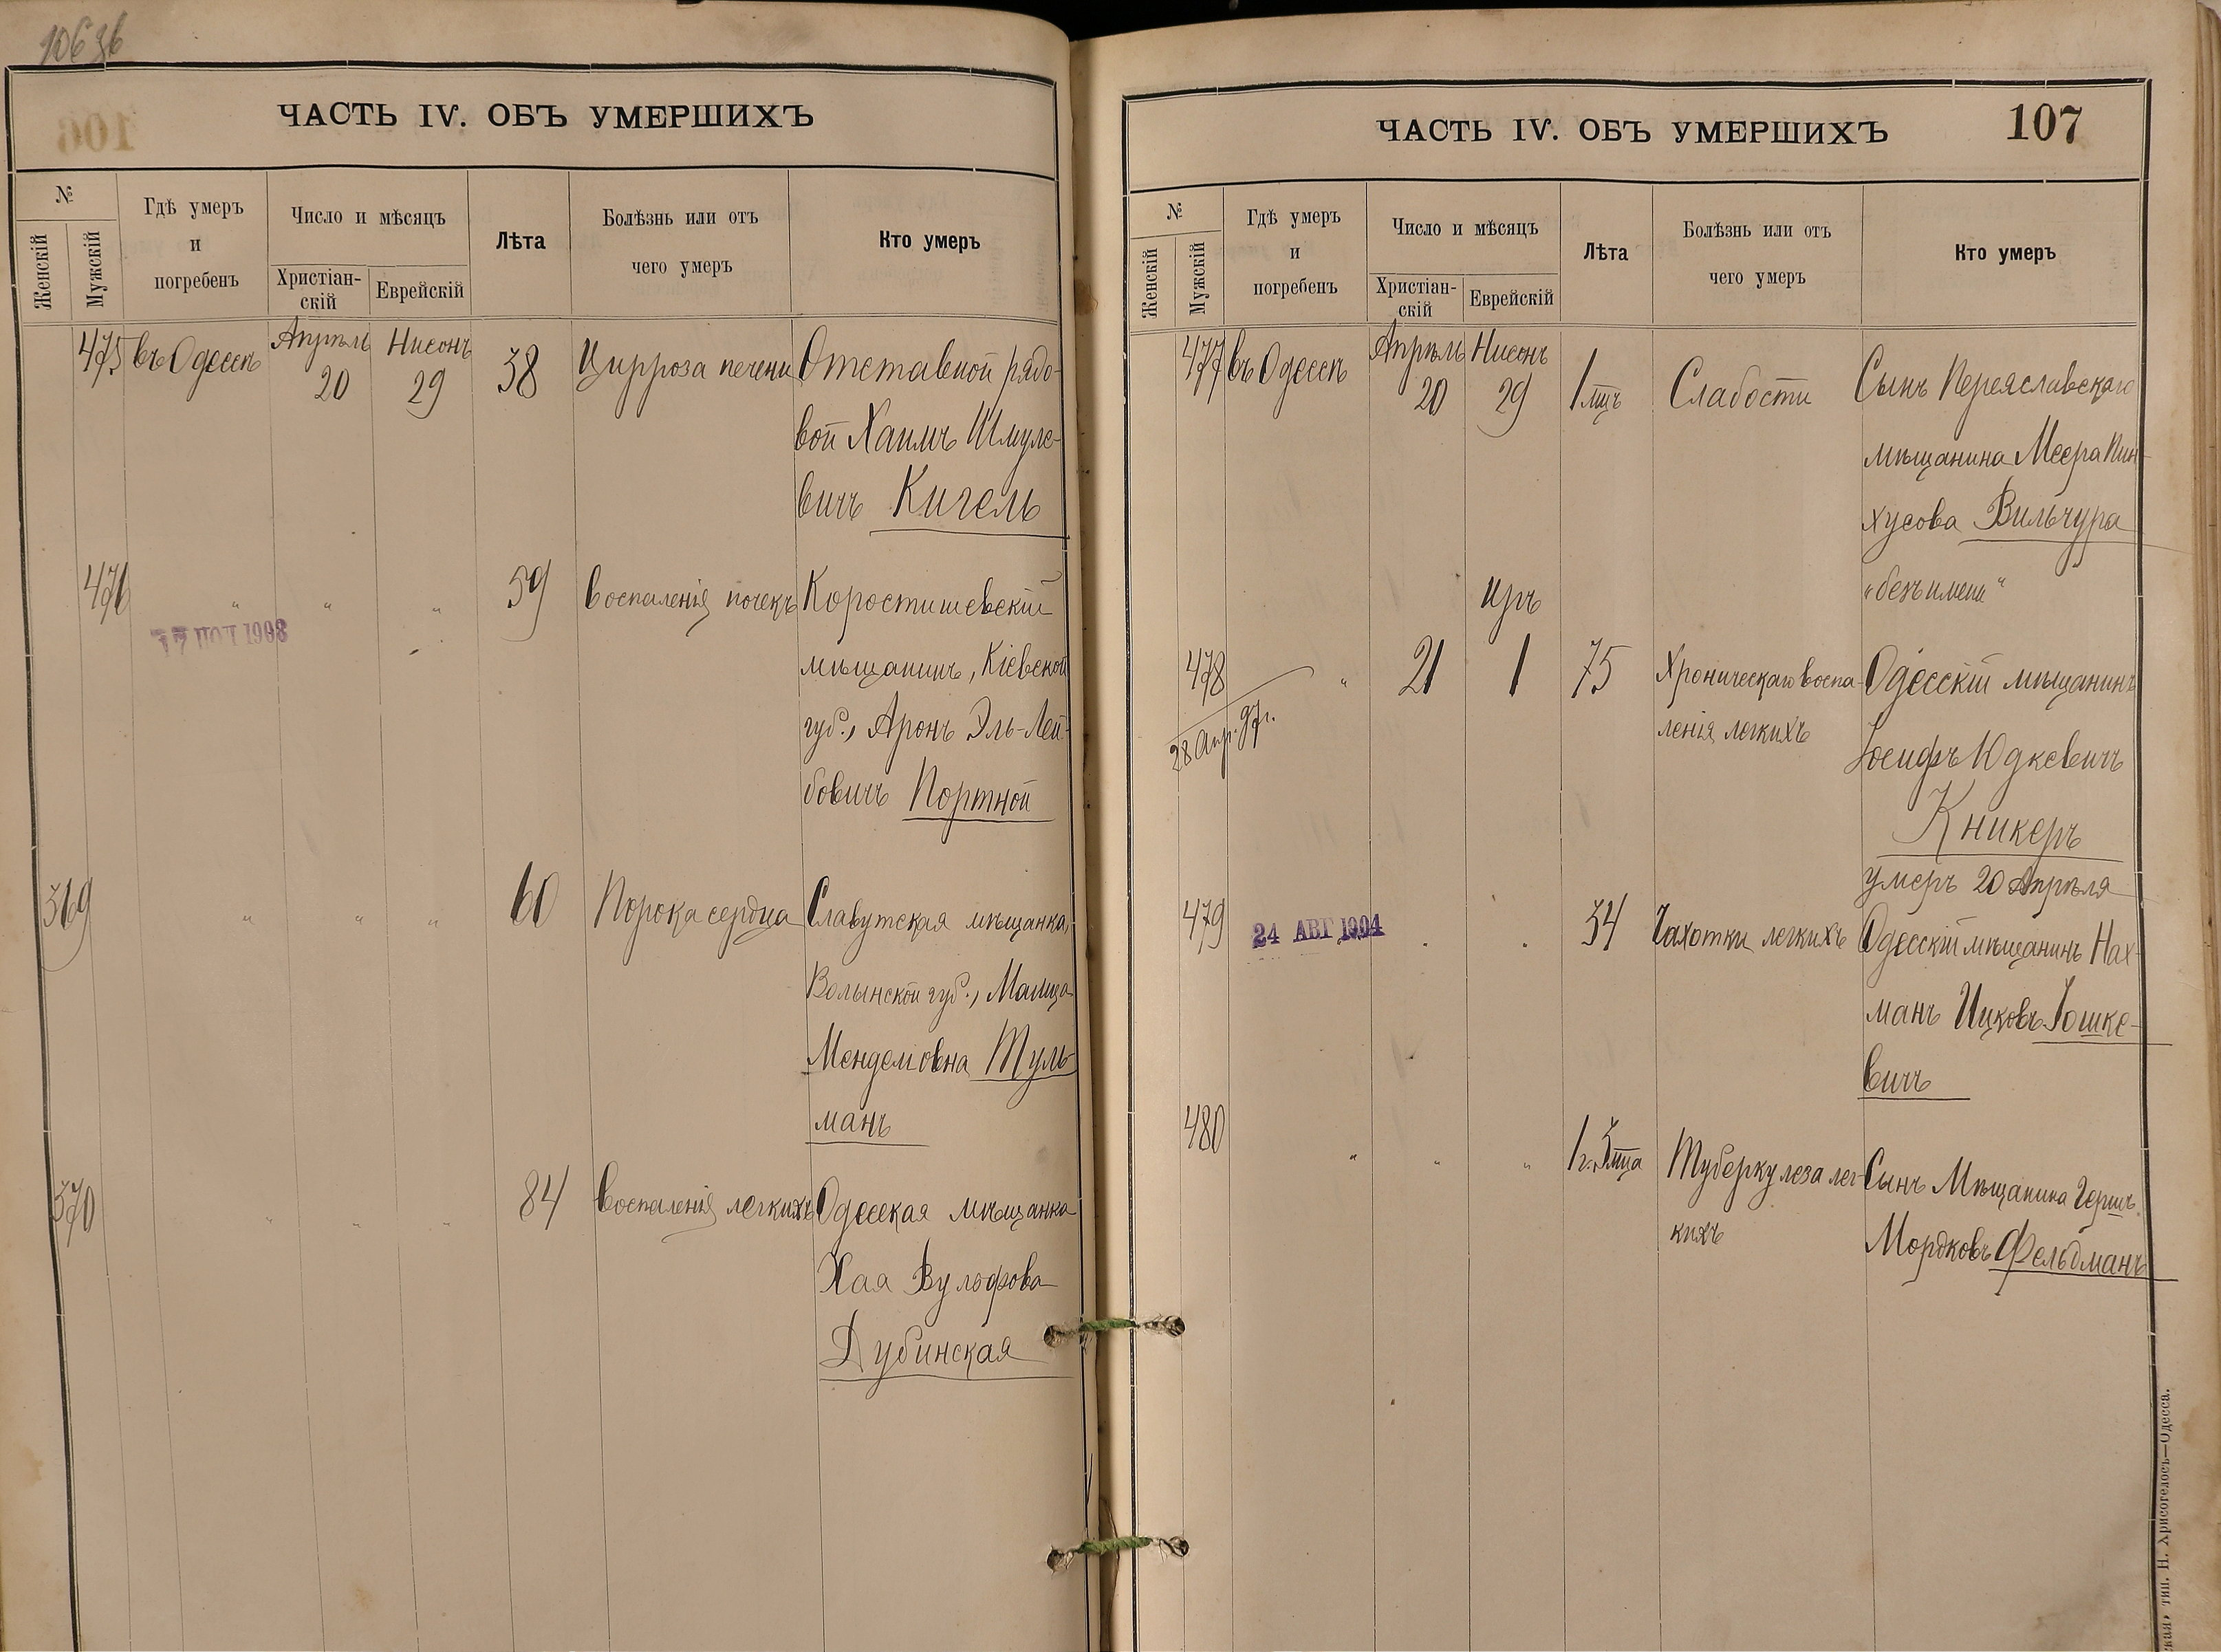 ЧАСТЬ IV. ОБЪ УМЕРШИХЪ
№
Женскій
Мужскій
Гдѣ умеръ
и
погребенъ
Число и мѣсяцъ
Христіан-
скій
Еврейскій
Лѣта
Болѣзнь или отъ
чего умеръ
Кто умеръ
475 въ Одессѣ Апрѣль 20 Нисонъ 29 38 Цирроза печени Отставной рядо-
вой Хаимъ Шмуле-
вичъ Кигель
476 " " " 59 Воспаленія почекъ Коростишевскій
мѣщанинъ, Кіевской
губ., Аронъ Эль-Лей-
бовичъ Портной
369 " " " 60 Порока сердца Славутская мѣщанка,
Волынской губ., Маица
Менделовна Туль-
манъ
370 " " " 84 Воспаленія легкихъ Одесская мѣщанка
Хая Вульфова
Дубинская
ЧАСТЬ IV. ОБЪ УМЕРШИХЪ 107
№
Женскій
Мужскій
Гдѣ умеръ
и
погребенъ
Число и мѣсяцъ
Христіан-
скій
Еврейскій
Лѣта
Болѣзнь или отъ
чего умеръ
Кто умеръ
477 въ Одессѣ Апрѣль 20 Нисонъ 29 1 мцъ Слабости Сынъ Переяславскаго
мѣщанина Меера Пин-
хусова Вильчура
"безъ имени"
Иръ
478 " 21 1 75 Хроническаго воспа- Одесскій мѣщанинъ
28 Апр. 97 г. ленія легкихъ Іосифъ Юдкевичъ
Кникеръ
умеръ 20 Апрѣля
479 24 АВГ 1904 " " 34 Чахотки легкихъ Одесскій мѣщанинъ Нах-
манъ Ицковъ Іошке-
вичъ
480 " " " 1 г. 3 мца Туберкулеза лег- Сынъ Мѣщанина Гершъ
кихъ Мордковъ Фельдманъ
тип. Н. Хрисогелосъ—Одесса.